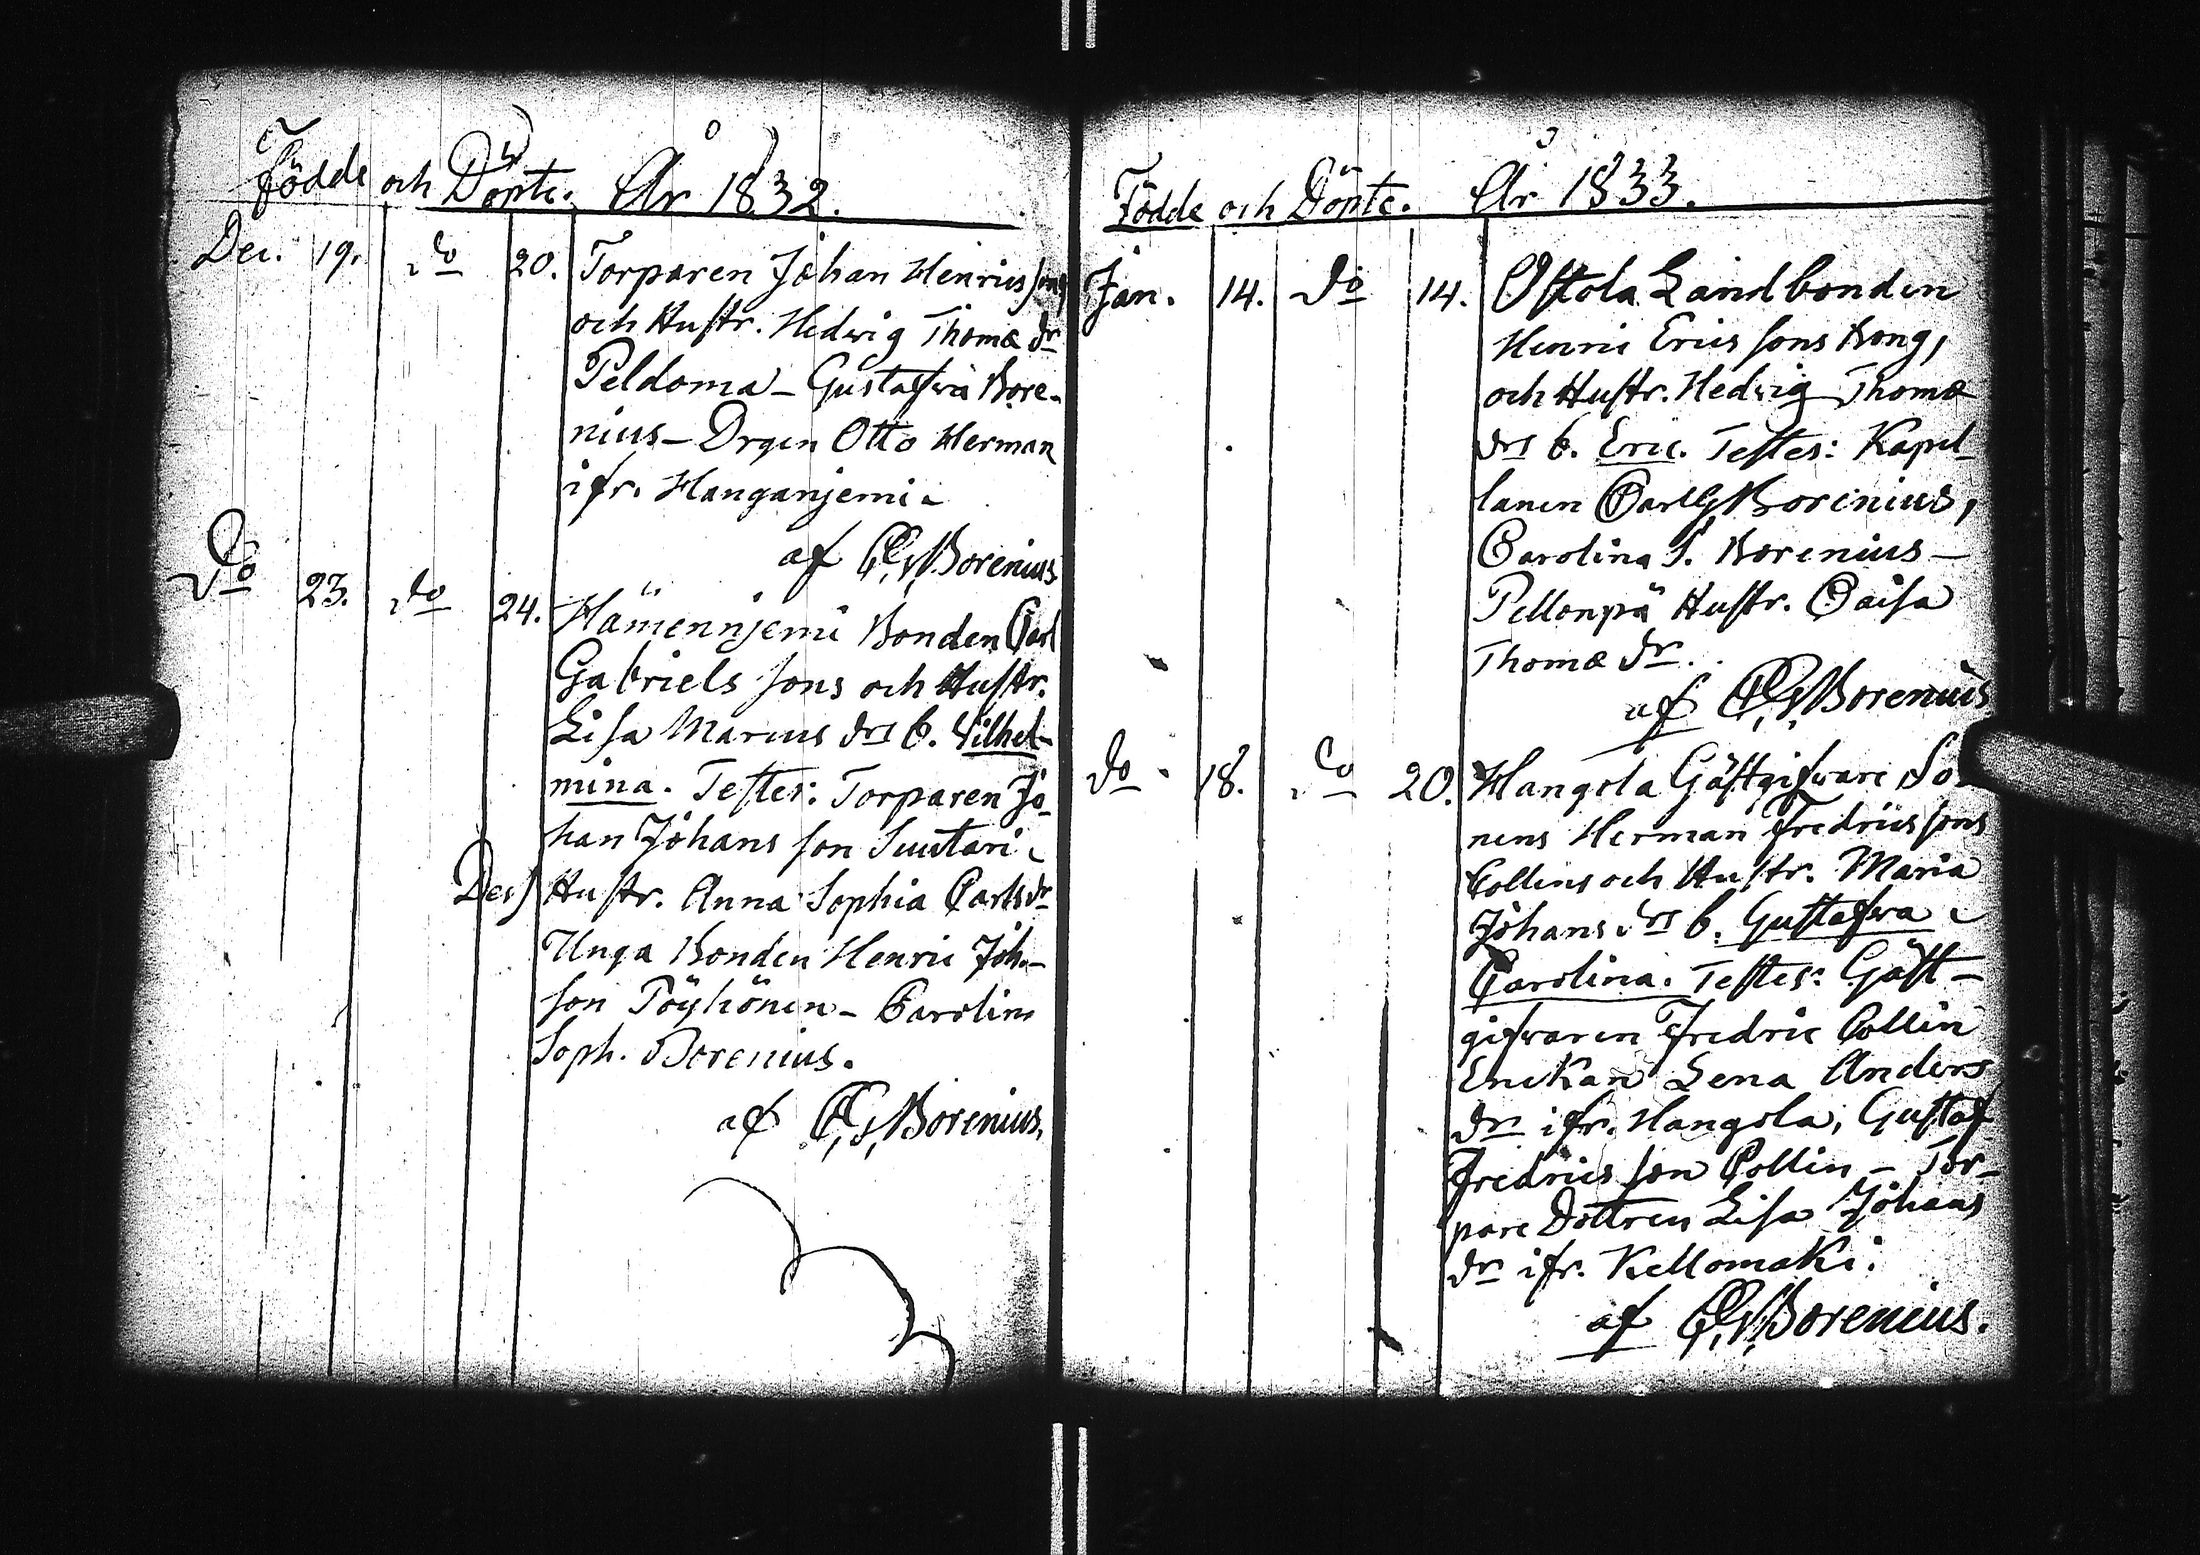 Födde och Döpte. År 1832.
Dec. 19. do 20. Torparen Johan Henricssons
och Hustr. Hedvig Thomæ dr
Peldoma – Gustafva Bore-
nius – Drgen Otto Herman
ifr. Hanganjemi.
af C. G. Borenius
Do 23. do 24. Hämennjemi Bonden Carl
Gabriels sons och Hustr.
Lisa Marcus drs b. Vilhel-
mina. Testes: Torparen Jo-
han Johans son Suutari
Des) Hustr. Anna Sophia Carls dr
Unga Bonden Henric Joh.-
son Pöyhönen – Carolina
Soph. Borenius.
af C. G. Borenius.
Födde och Döpte. År 1833.
Jan. 14. do 14. Ostola Landbonden
Henric Erics sons Bong,
och Hustr. Hedvig Thomæ
drs b. Eric. Testes: Kapel-
lanen Carl G Borenius,
Carolina S. Borenius –
Pellonpä Hustr. Caisa
Thomæ dr.
af C. G. Borenius
do 18. do 20. Hangola Gästgifvare So-
nens Herman Fredricssons
Collins och Hustr. Maria
Johans drs b. Gustafva
Carolina. Testes: Gäst-
gifvaren Fredric Collin
Enckan Lena Anders
dr ifr. Hangola, Gustaf
Fredrics son Collin – Tor-
pare Dottren Lisa Johans
dr ifr. Kellomaki.
af C. G. Borenius.